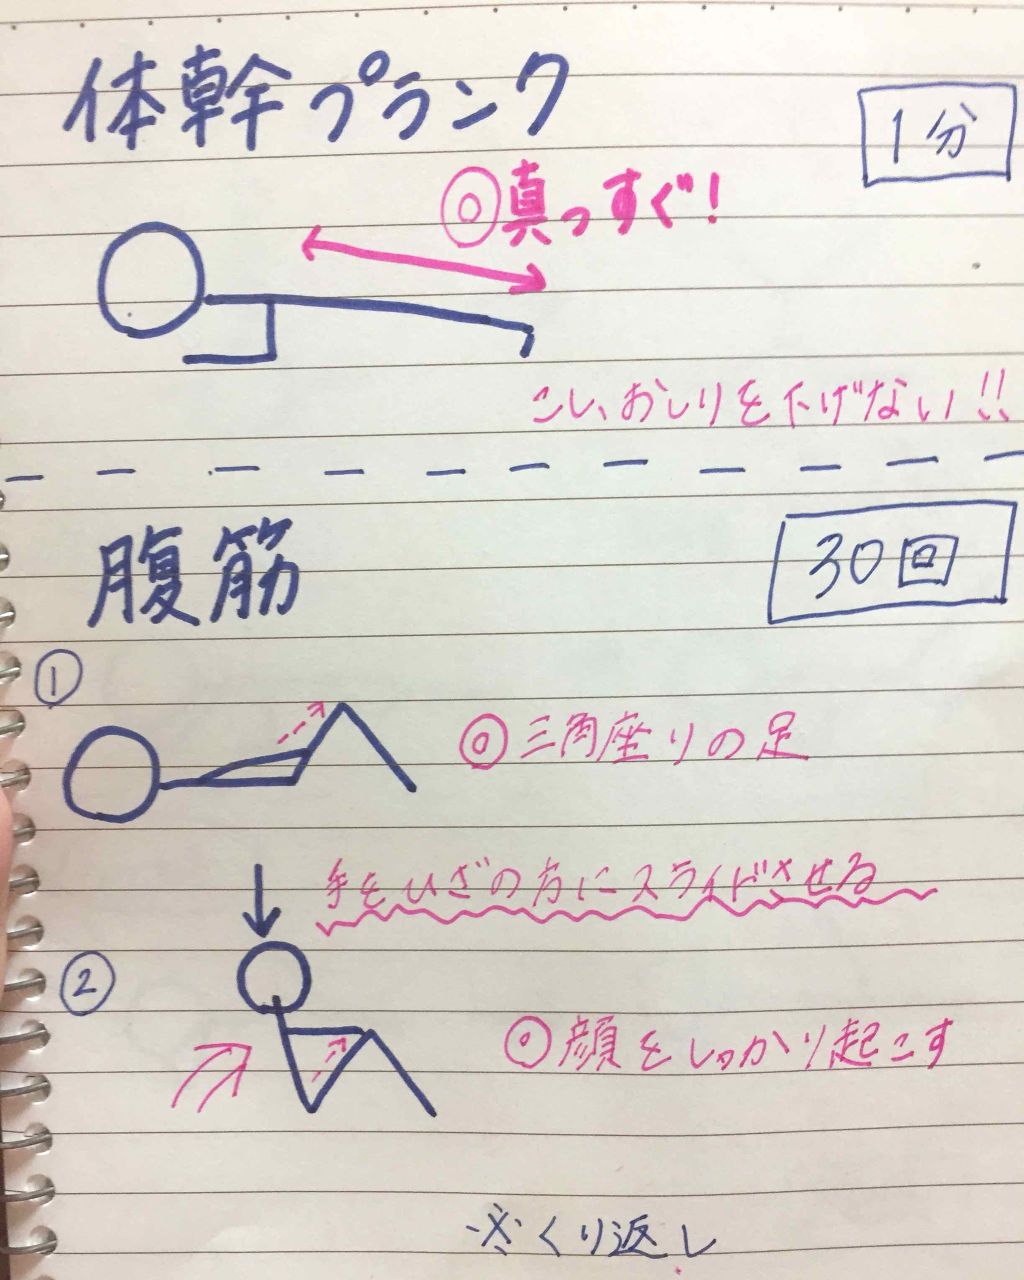 体幹プランク
1分
◎真っすぐ!
こし、おしりを下げない!!
腹筋
30回
①
◎三角座りの足
手をひざの方にスライドさせる
②
◎顔をしっかり起こす
※くり返し